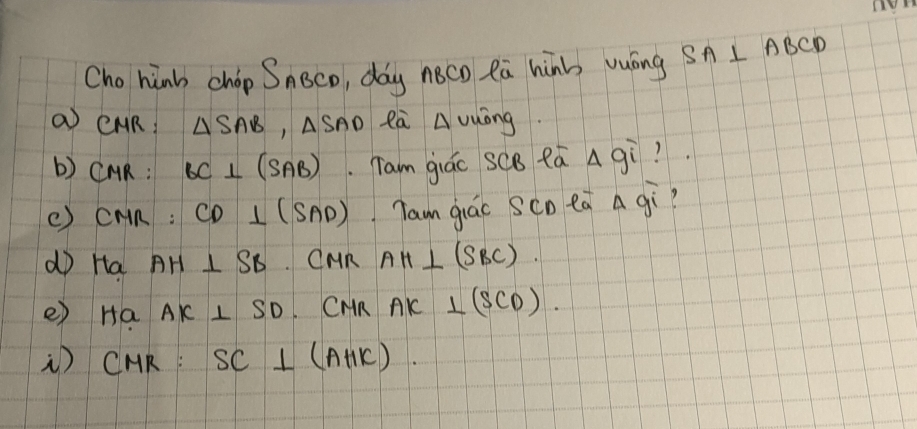 Cho hình chóp SABCD, đáy ABCD là hình vuông SA ⊥ ABCD
a) CMR: ΔSAB, ΔSAD là Δ vuông.
b) CMR: BC ⊥ (SAB). Tam giác SCB là Δ gì?.
c) CMR: CD ⊥ (SAD). Tam giác SCD là Δ gì?
d) Hạ AH ⊥ SB. CMR AH ⊥ (SBC).
e) Hạ AK ⊥ SD. CMR AK ⊥ (SCD).
i) CMR: SC ⊥ (AHK).